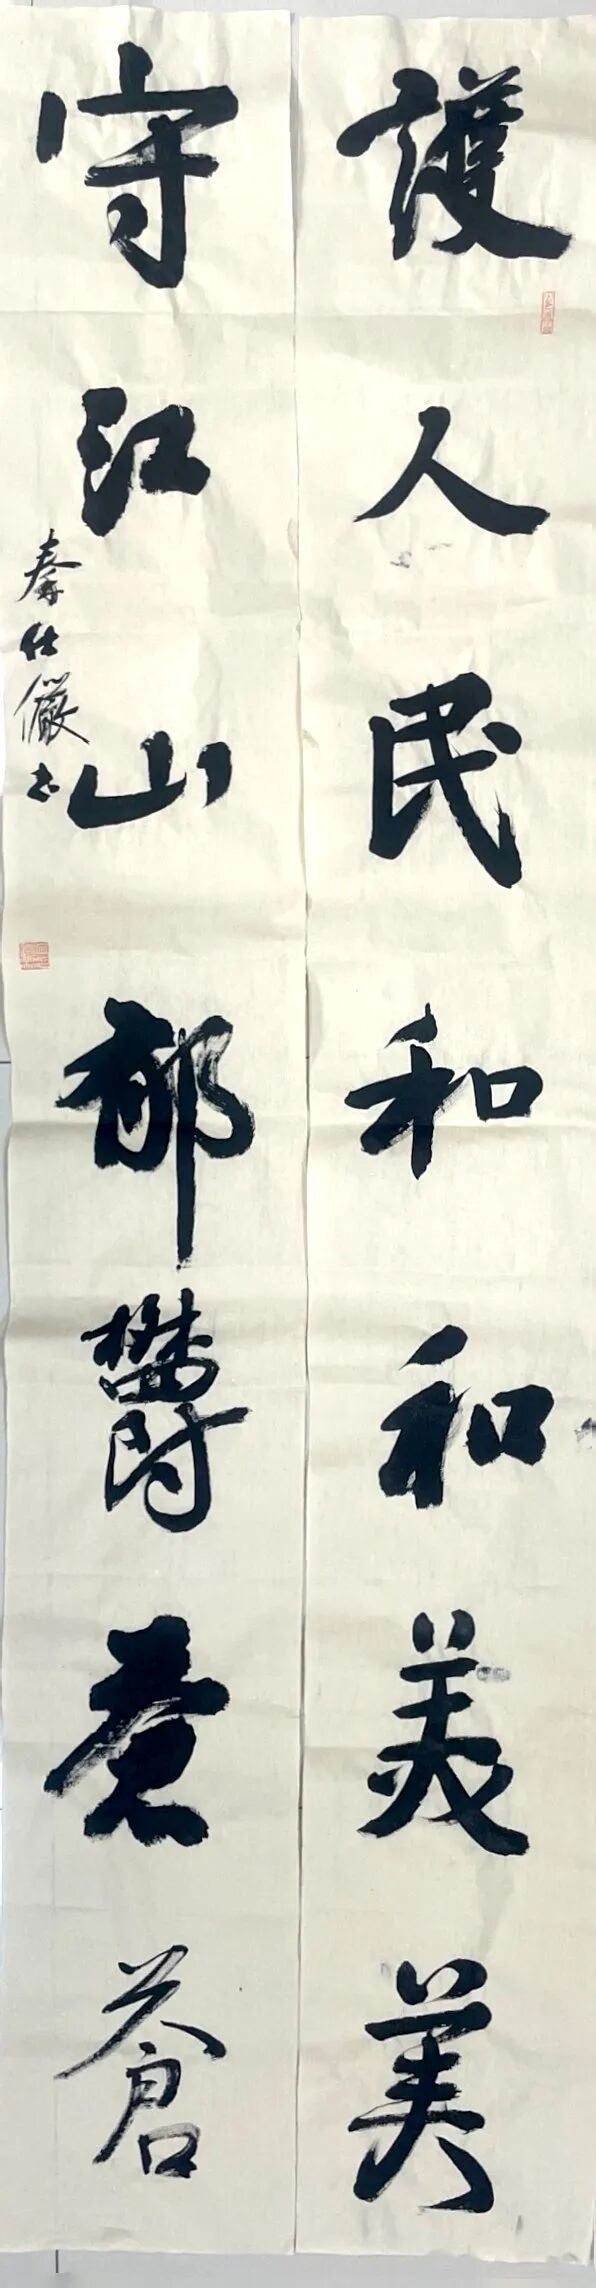 護人民和和美美
守江山郁鬱蒼蒼
秦仕儼书